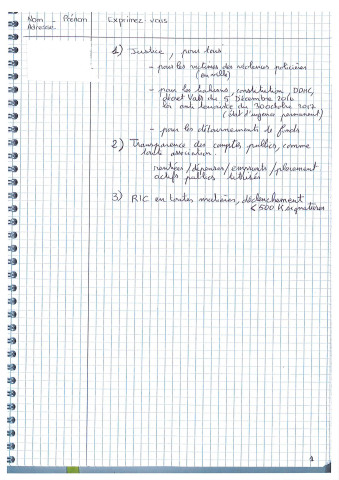 Nom - Prénom
Adresse.
Exprimez vous
1) Justice, pour tous
- pour les victimes des violences policières
- pour les trahisons, constitution, DDHC,
décret Valls du 5 Décembre 2016
loi anti terroriste du 30 octobre 2017
(état d'urgence permanent)
- pour les détournements de fonds
2) Transparence des comptes publics, comme
toute association.
rentrées / dépenses / emprunts / placement
actifs publics
3) RIC en toutes matières, déclenchement
< 500 K signatures
1